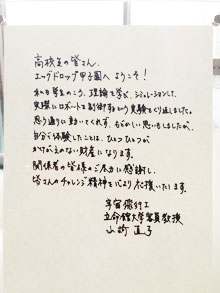 高校生の皆さん、
エッグドロップ甲子園へようこそ！
私も学生のころ、理論を学び、シミュレーションして、
実際にロボットを制御するという実験をくり返しました。
思う通りに動いてくれず、もどかしい思いもしましたが、
自分で体験したことは、ひとつひとつが
かけがえのない財産になります。
関係者の皆様のご尽力に感謝し、
皆さんのチャレンジ精神を心より応援いたします。
宇宙飛行士
立命館大学客員教授
山崎直子